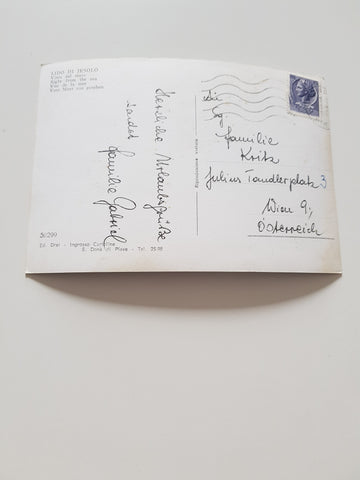 LIDO DI JESOLO
Vista dal mare
Sight from the sea
Vue de la mer
Vom Meer aus gesehen
Herzliche Urlaubsgrüße
sendet
Familie Gabriel
An
Fg.
Familie
Kritz
Julius Tandlerplatz 3
Wien 9;
Österreich
50/299
Ed. Drei - Ingrosso Cartoline
S. Donà di Piave - Tel. 25.98